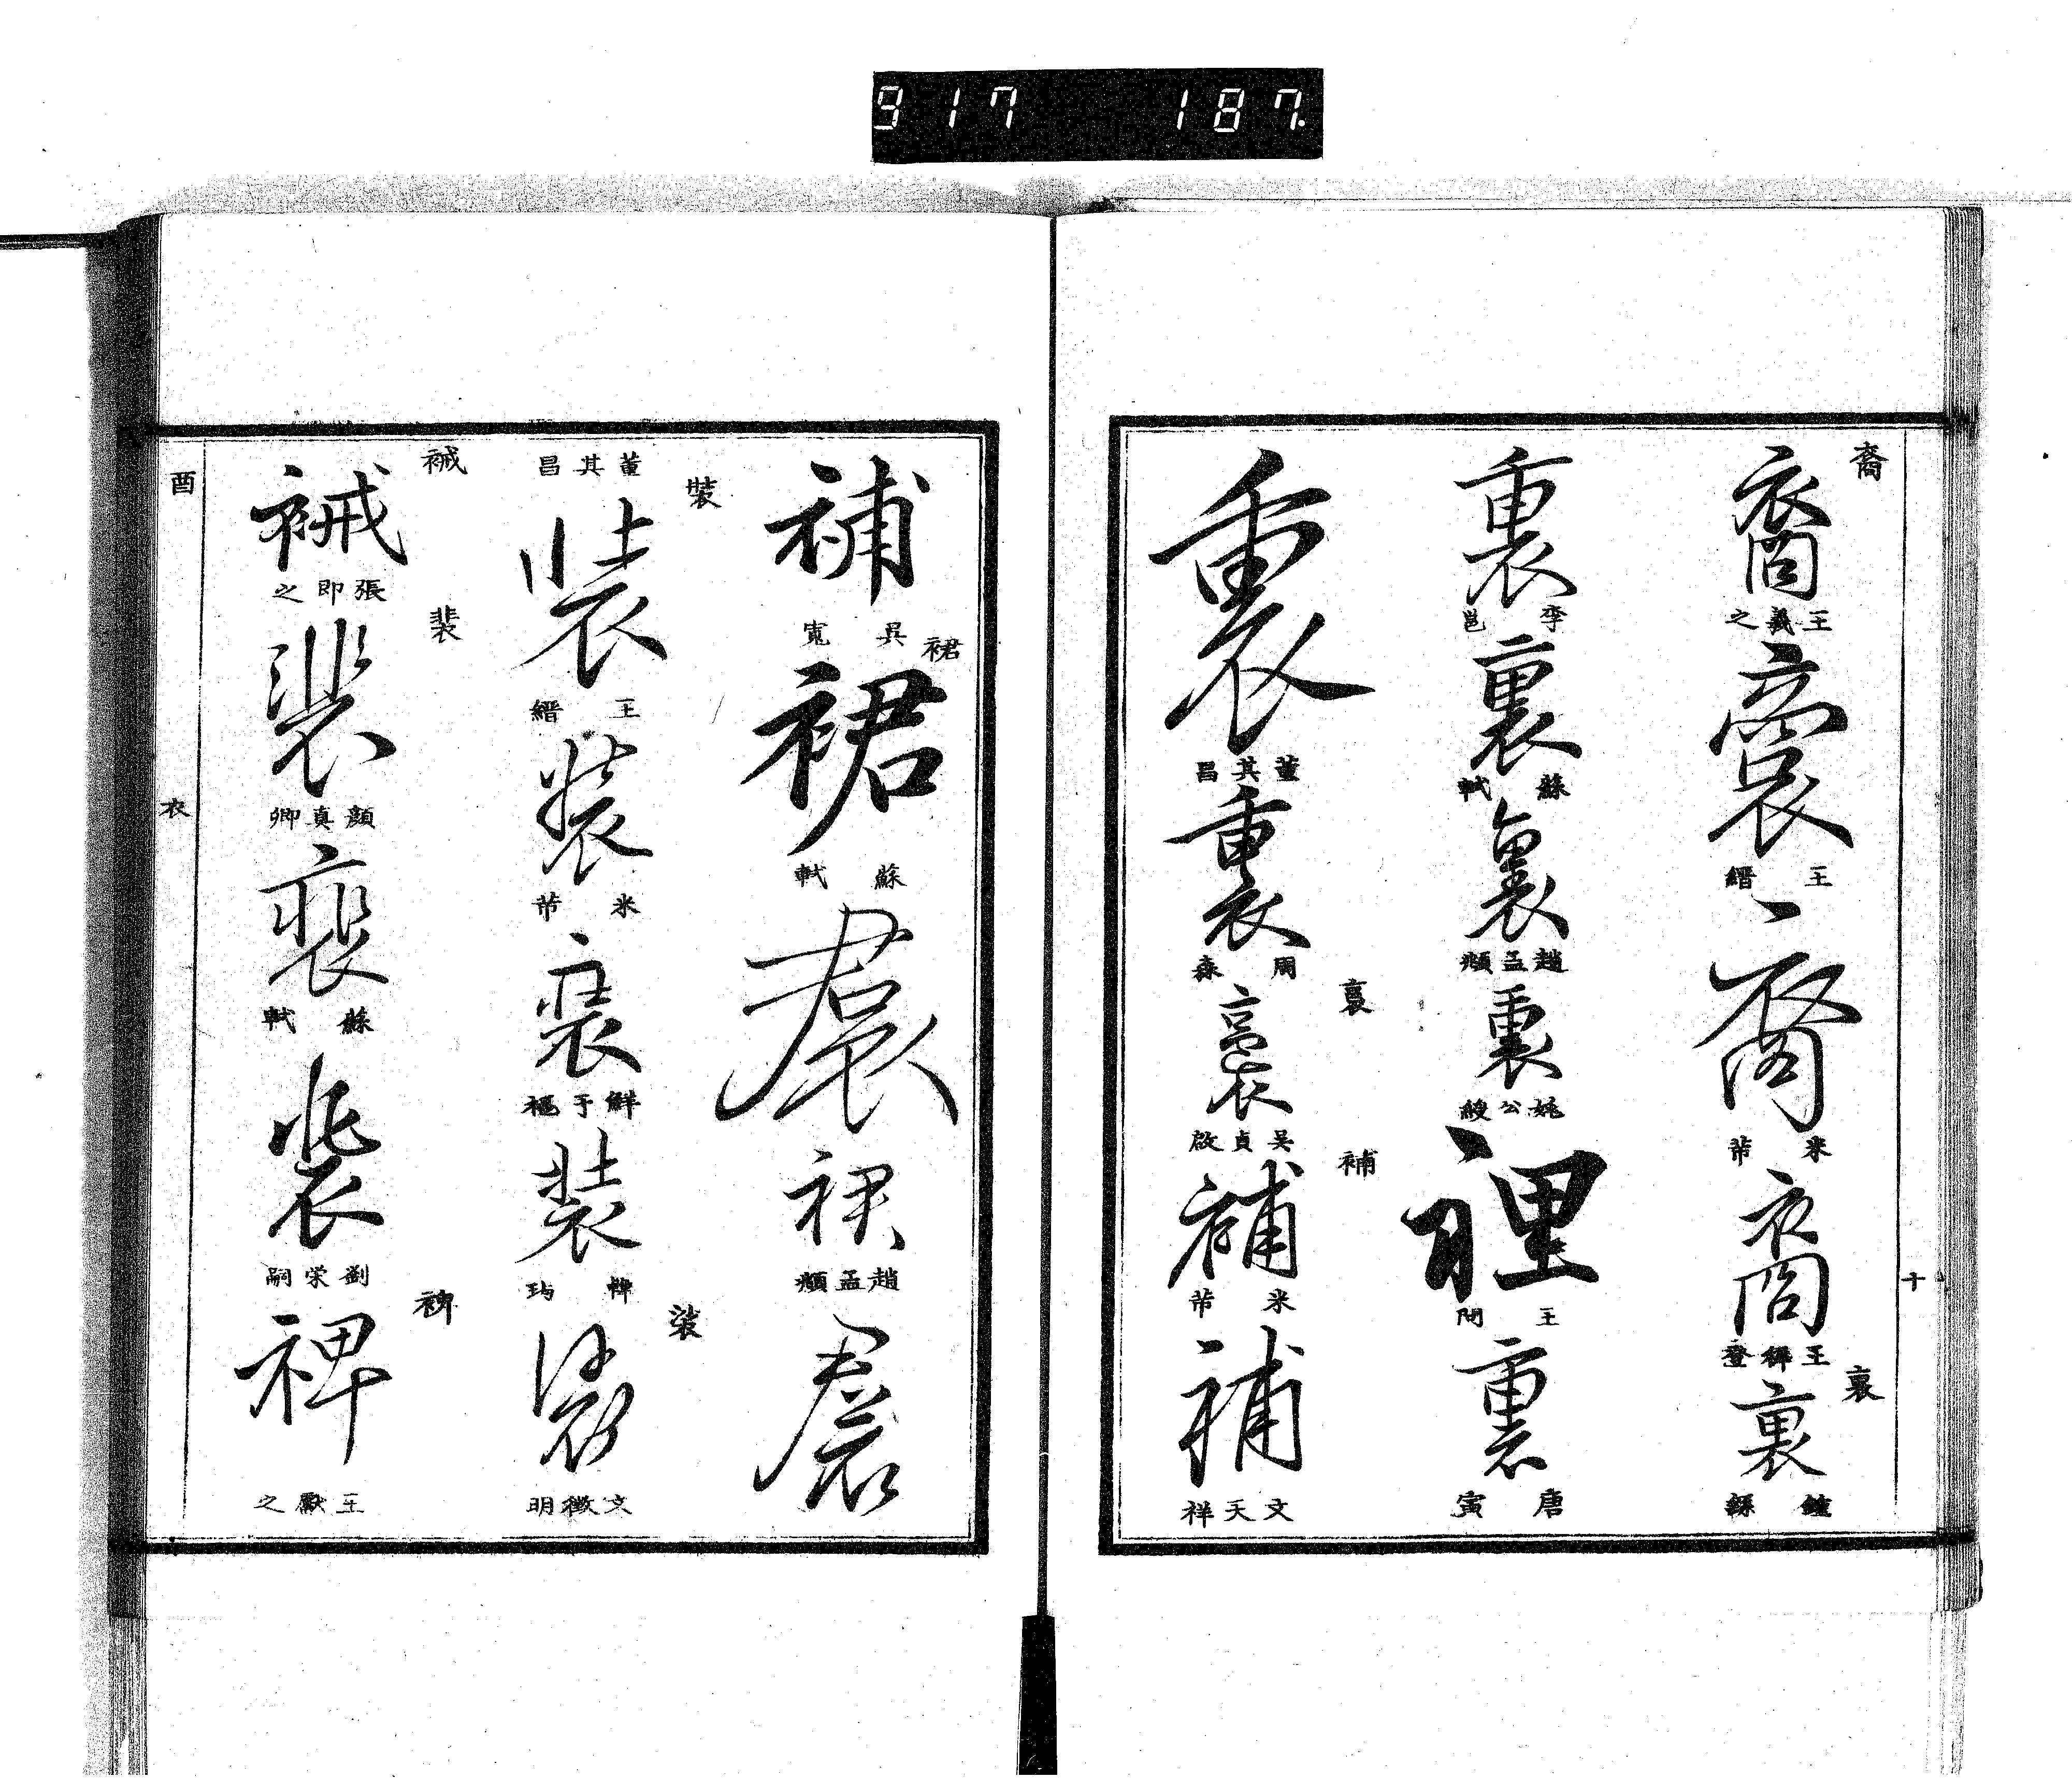 917 187.
裔
裔
王羲之
裔
王縉
裔
米芾
裔
王穉登
裏
裏
鍾繇
十
裏
李邕
裏
蘇軾
裏
趙孟頫
裏
姚公綬
裡
王問
裏
唐寅
裏
董其昌
裏
周森
吳貞啟
補
補
米芾
補
文天祥
補
吳寬
裙
裙
蘇軾
裠
裙
趙孟頫
裠
董其昌
裝
裝
王縉
裝
米芾
裝
鮮于樞
裝
文徵明
裓
張即之
裴
裴
顏真卿
裴
蘇軾
裴
劉榮嗣
裨
裨
王獻之
酉
衣